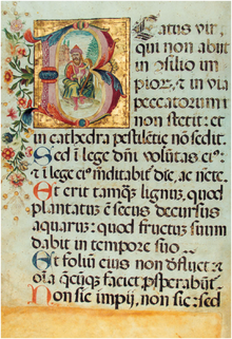 Beatus vir,
qui non abiit
in ɔsilio im
pioꝝ, et in via
peccatorum
non stetit: et
in cathedra pestilētię nō sedit.
Sed ī lege dn̄i volūtas eiꝰ:
et ī lege eiꝰ meditabit̉ die, ac nocte.
Et erit tamqȝ lignuȝ, quod
plantatuȝ ē secus decursus
aquaruȝ: quod fructuȝ suum
dabit in tempore suo
Et foliuȝ eius non defluet: et
oīa quęcūqȝ faciet ꝓsperabūt̉.
Non sic impij, non sic: sed